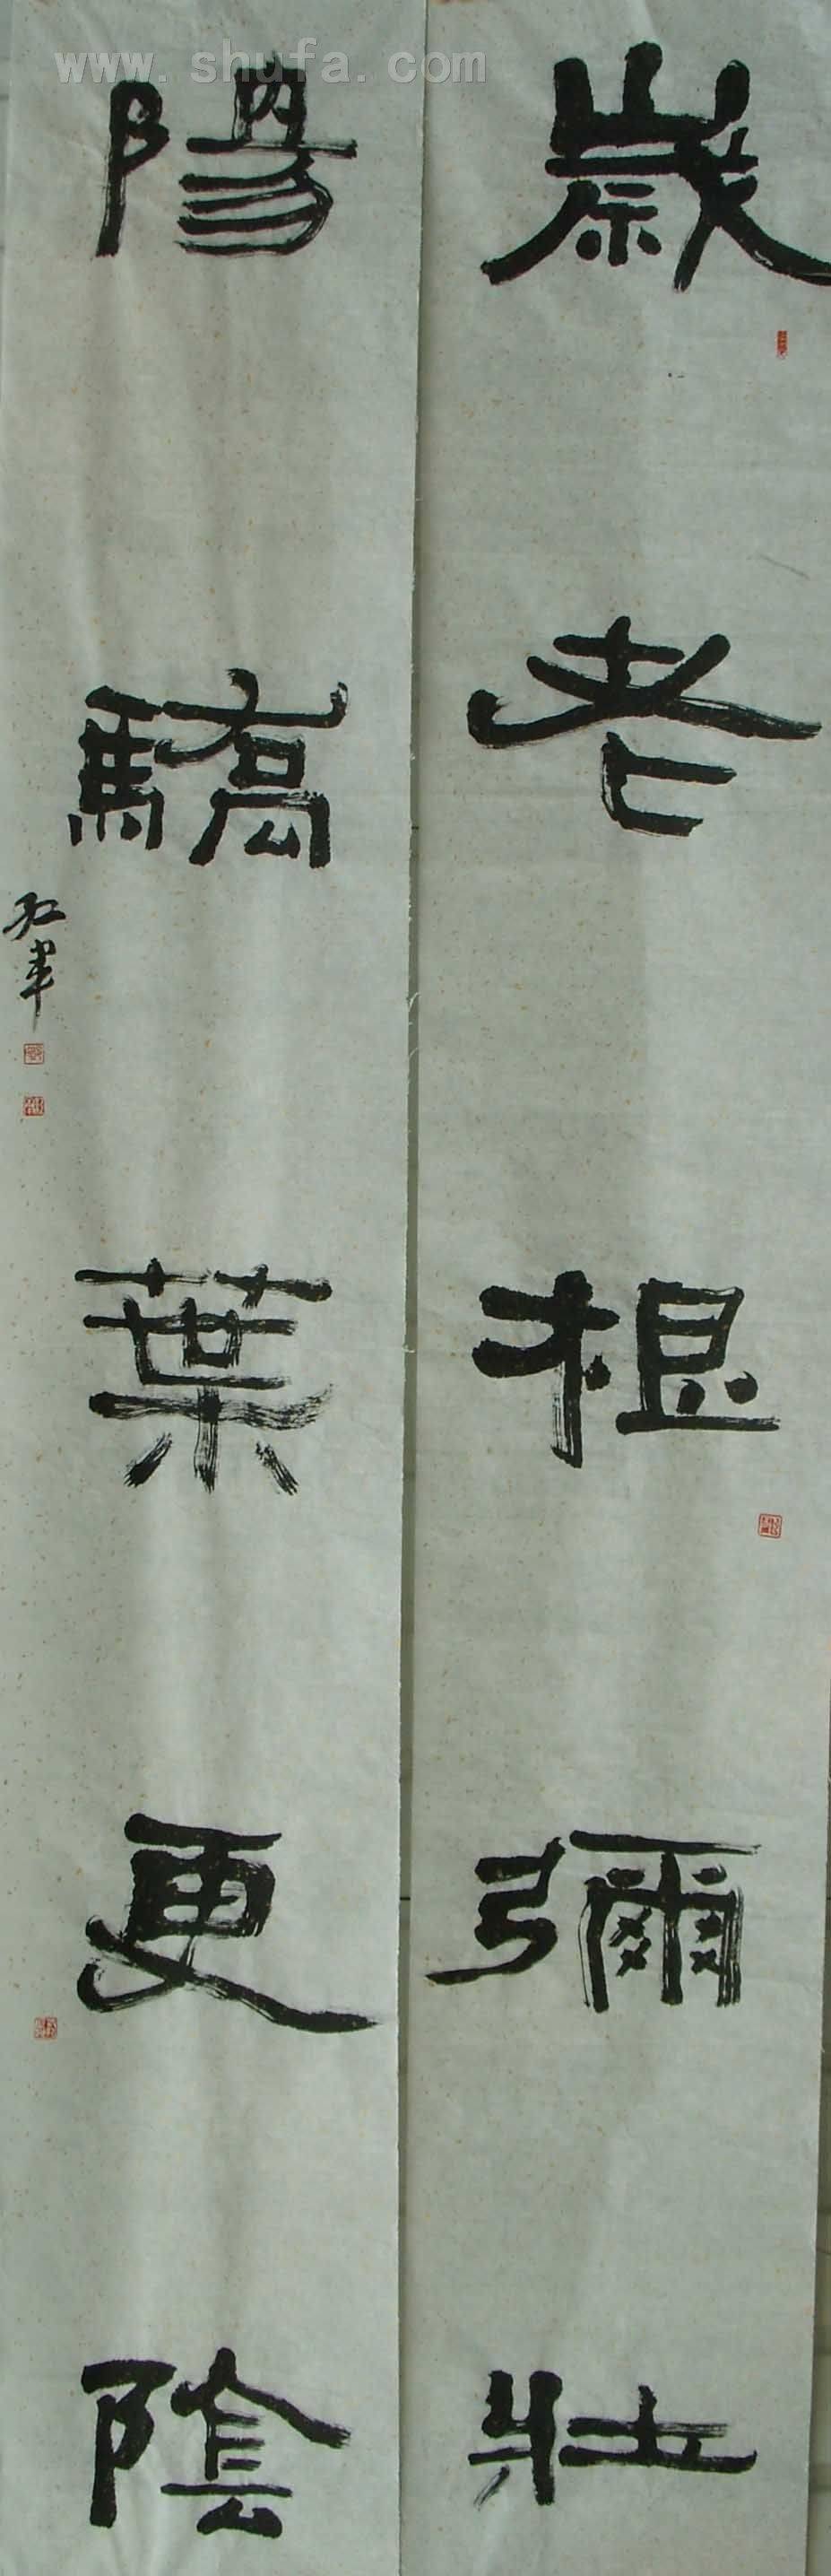 歲老根彌壯
陽驕葉更陰
www.shufa.com